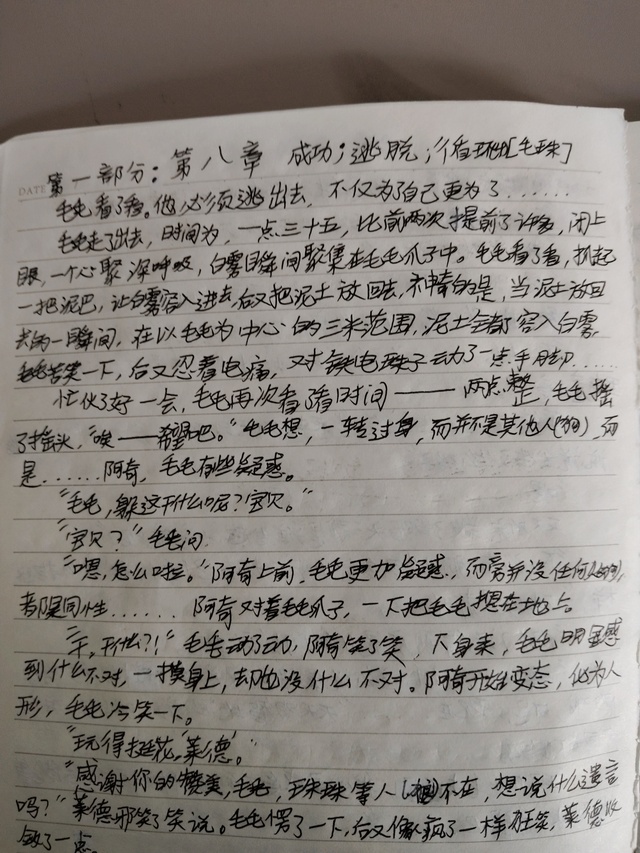 DATE
第一部分：第八章 成功；逃脱；循环[毛珠]
毛毛看了看。他必须逃出去，不仅为了自己更为了……
毛毛走了出去，时间为，一点三十五，比前两次提前了许多，闭上
眼，一心聚深呼吸，白雾瞬间聚集在毛毛爪子中。毛毛看了看，抓起
一把泥巴，让白雾容入进去，后又把泥土放回去，神奇的是，当泥土放回
去的一瞬间，在以毛毛为中心的三米范围，泥土全都容入白雾，
毛毛苦笑一下，后又忍着电痛，又对铁电珠子动了一点手脚……
忙伙了好一会，毛毛再次看了看时间——两点整，毛毛摇
了摇头，“唉——希望吧。”毛毛想，一转过身，而并不是其他人(狗)，而
是……阿奇，毛毛有些疑惑。
“毛毛，躲这干什么呢？宝贝。”
“宝贝？”毛毛问
“嗯，怎么啦。”阿奇上前，毛毛更加疑惑，而旁并没任何人(狗)，
都是同性……阿奇对着毛毛爪子，一下把毛毛摁在地上。
“干，干什么?！”毛毛动了动，阿奇笑了笑，下身来，毛毛明显感
到什么不对，一摸身上，却也没什么不对。阿奇开始变态，化为人
形，毛毛冷笑一下。
“玩得挺花，‘莱德’。”
“感谢你的赞美，毛毛，珠珠等人(狗)不在，想说什么遗言
吗？”莱德邪笑了笑说。毛毛愣了一下，后又像疯了一样狂笑，莱德收
敛了一点。